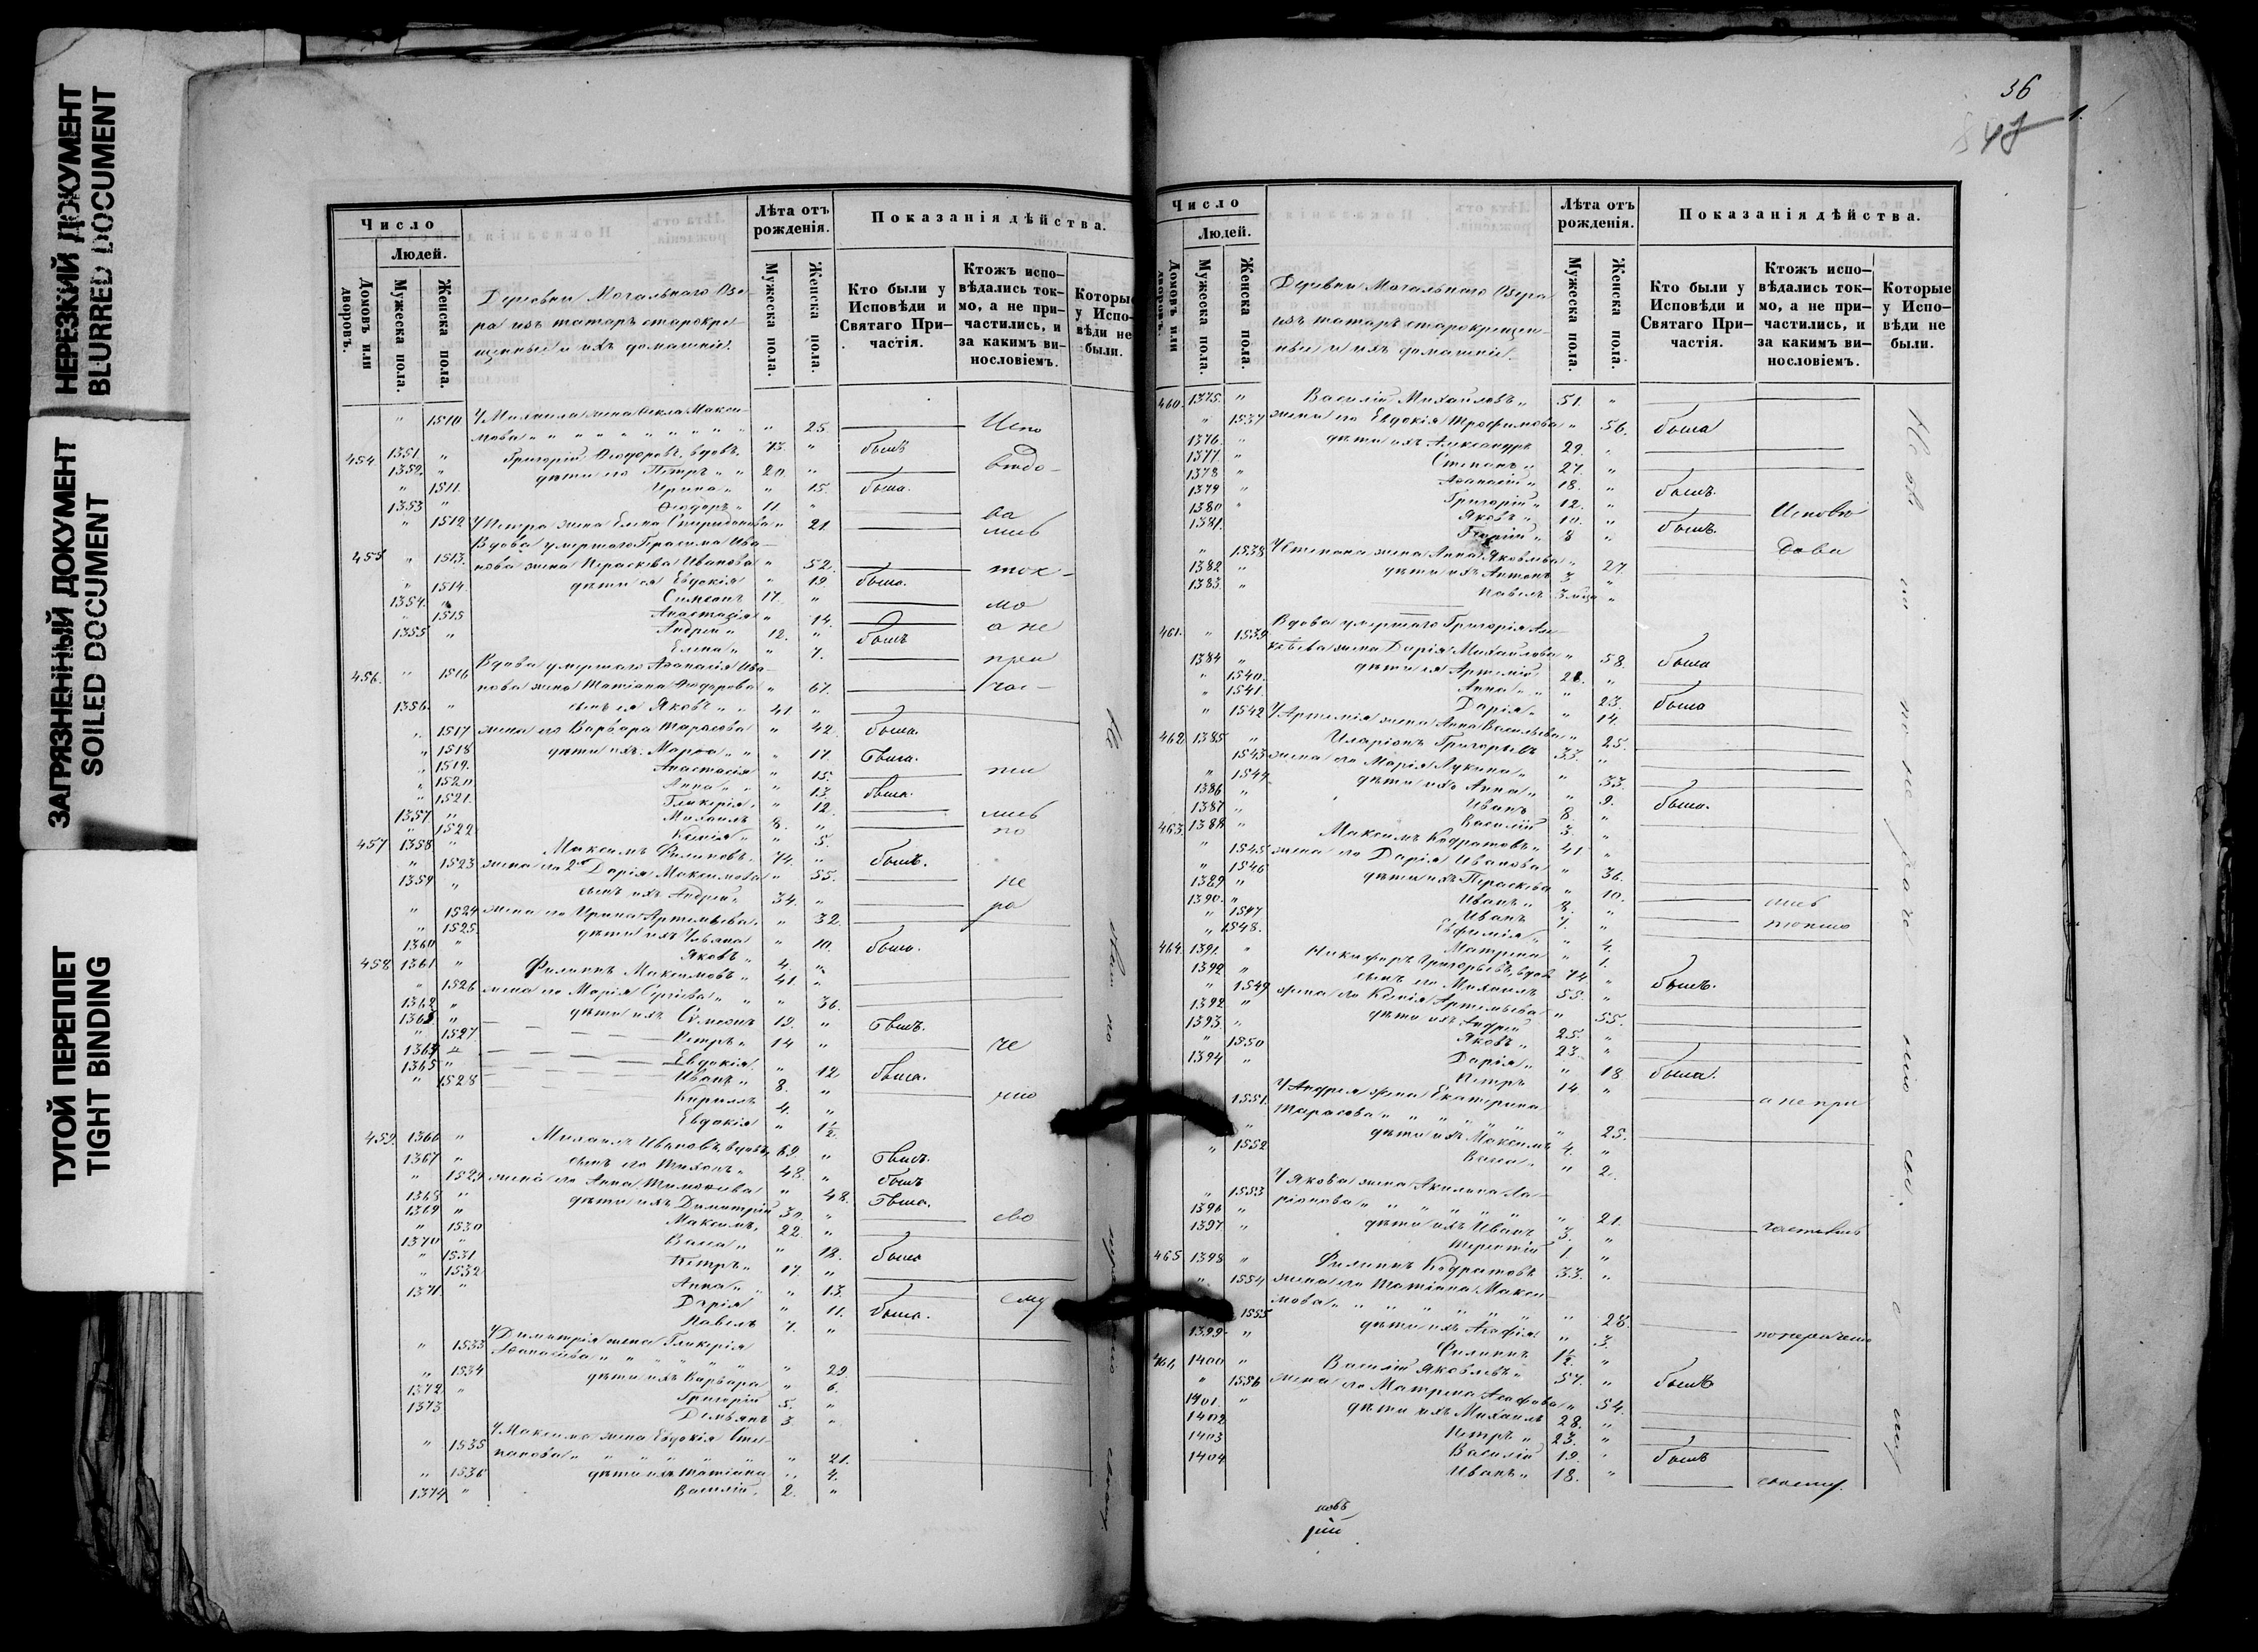 НЕРЕЗКИЙ ДОКУМЕНТ
BLURRED DOCUMENT
ЗАГРЯЗНЕННЫЙ ДОКУМЕНТ
SOILED DOCUMENT
ТУГОЙ ПЕРЕПЛЕТ
TIGHT BINDING
Число
Людей.
Домовъ или дворовъ.
Мужеска пола.
Женска пола.
Деревни Могальнаго Озе-
ра изъ татаръ старокре-
щенные и ихъ домашніе.
Лѣта отъ рожденія.
Мужеска пола.
Женска пола.
Показанія дѣйства.
Кто были у Исповѣди и Святаго Причастія.
Ктожъ исповѣдались токмо, а не причастились, и за какимъ винословіемъ.
Которые у Исповѣди не были.
" 1510 У Михаила жена Фекла Макси-
мова " 25. Испо
454 1351. " Григорій Ѳеодоровъ, вдовъ, 73. " былъ
1352. " дѣти его Петръ " 20. " вѣдо-
" 1511. Ирина " " 15. была.
1353 " Ѳеодоръ " 11 "
" 1512 У Петра жена Елена Спиридонова " 21. лись
Вдова умершаго Герасима Ива-
455 " 1513. нова жена Параскева Иванова " 52. ток-
" 1514. дѣти ея Евдокія " 19 была.
1354. " Симеонъ 17. " мо
" 1515 Анастасія " 14. а не
1355 " Андрей " 12. " былъ
Елена " " 7. при
Вдова умершаго Аѳанасія Ива-
456. " 1516 нова жена Татіана Ѳеодорова " 67. час-
1356. " сынъ ея Яковъ " 41 "
" 1517 жена его Варвара Тарасова " 42. была.
" 1518 дѣти ихъ Марѳа " " 17. была.
" 1519. Анастасія " 15. ти
" 1520 Анна " " 13. была.
" 1521. Гликерія " " 12.
1357 " Михаилъ 8. " лись
" 1522 Ксенія " " 5. по
457 1358 " Максимъ Филиповъ. 74. " былъ.
" 1523 жена его 2я Дарія Максимова " 55. не
1359 " сынъ ихъ Андрей 34. " ра
" 1524 жена его Ирина Артемьева. " 32.
" 1525. дѣти ихъ Ульяна " 10. была.
1360 " Яковъ " 4. "
458 1361 " Филиппъ Максимовъ " 41. "
" 1526 жена его Марія Сергіева " " 36.
1362 " дѣти ихъ Симеонъ 19. " былъ.
1363. " Петръ " 14 " че
" 1527. Евдокія " 12. была.
1364 " Иванъ " 8. "
1365 " Кириллъ 4. " нію
" 1528 Евдокія " 1½.
459. 1366 " Михаилъ Ивановъ, вдовъ, 69 " былъ.
1367 " сынъ его Тихонъ " 48. " былъ
" 1529 жена его Анна Тимоѳеева " 48. была.
1368 " дѣти ихъ Димитрій 30. "
1369 " Максимъ, 22. " сво
" 1530 Васса " " 18. была
1370 " Петръ " 17. "
" 1531 Анна " " 13.
" 1532 Дарія " 11. была. ему
1371 " Павелъ 7. "
" 1533 У Димитрія жена Гликерія
Аѳанасіева " 29.
" 1534 дѣти ихъ Варвара " 6.
1372 " Григорій 5. "
1373 Демьянъ 3. "
" 1535 У Максима жена Евдокія Сте-
панова " 21.
" 1536 дѣти ихъ Татіана " 4.
1374 " Василій. 2. "
36
1.
Число
Людей.
Домовъ или дворовъ.
Мужеска пола.
Женска пола.
Деревни Могальнаго Озера
изъ татаръ старокрещен-
ные и ихъ домашніе.
Лѣта отъ рожденія.
Мужеска пола.
Женска пола.
Показанія дѣйства.
Кто были у Исповѣди и Святаго Причастія.
Ктожъ исповѣдались токмо, а не причастились, и за какимъ винословіемъ.
Которые у Исповѣди не были.
460. 1375. " Василій Михайловъ " 51. "
" 1537 жена его Евдокія Трофимова " 56. была
1376. " дѣти ихъ Александръ 29. "
1377. " Степанъ " 27. "
1378 " Аѳанасій " 18. " былъ.
1379 " Григорій " 12. "
1380 " Яковъ " 10. " былъ. Исповѣ
1381. 8 "
" 1538 У Степана жена Анна Яковлева " 27. дова
1382 " дѣти ихъ Антонъ 3 "
1383. " Павелъ 3 "
Вдова умершаго Григорія Але-
461. " 1539 ксѣева жена Дарія Михайлова " 58. была
1384 " дѣти ея Артемій 28. "
" 1540. Анна " " 23. была
" 1541. Дарія " " 14.
" 1542 У Артемія жена Анна Васильева " 25.
462 1385 " Иларіонъ Григорьевъ 33. "
" 1543 жена его Марія Лукина " " 33.
" 1544 дѣти ихъ Анна " " 9. была.
1386 " Иванъ 8. "
1387 " Василій 3. "
463. 1388 " Максимъ Кодратовъ " 41. "
" 1545 жена его Дарія Иванова " 36.
" 1546 дѣти ихъ Параскева " 10.
1389 " Иванъ " 8. " лись
1390. " Иванъ 7. " токмо
" 1547 Евфимія " " 4.
" 1548. Матрена " 1.
464. 1391. " Никифоръ Григорьевъ, вдов 74. " былъ.
1392 " сынъ его Михаилъ 55. "
" 1549 жена его Ксенія Артемьева " 55.
1392 " дѣти ихъ Андрей 25. "
1393. " Яковъ " 23. "
" 1550 Дарія " " 18 была.
1394 " Петръ 14 "
" 1551. У Андрея жена Екатерина а не при
Тарасова " 25.
" дѣти ихъ Максимъ 4. "
" 1552 Васса " " 2.
" 1553 У Якова жена Акилина Ла-
ріонова " 21.
1396 " дѣти ихъ Иванъ 3. " частились
1397 " Терентій 1. "
465 1398 " Филиппъ Кодратовъ 33. "
" 1554 жена его Татіана Макси-
мова " 28.
1555 дѣти ихъ Агафія " 3.
1399. " Филиппъ 1½. "
466 1400 " Василій Яковлевъ " 57. " былъ
" 1556 жена его Матрена Агафова " 54.
1401. " дѣти ихъ Михаилъ 28. "
1402 Петръ " 23. "
1403 Василій 19. " былъ
1404 Иванъ " 18. " своему.